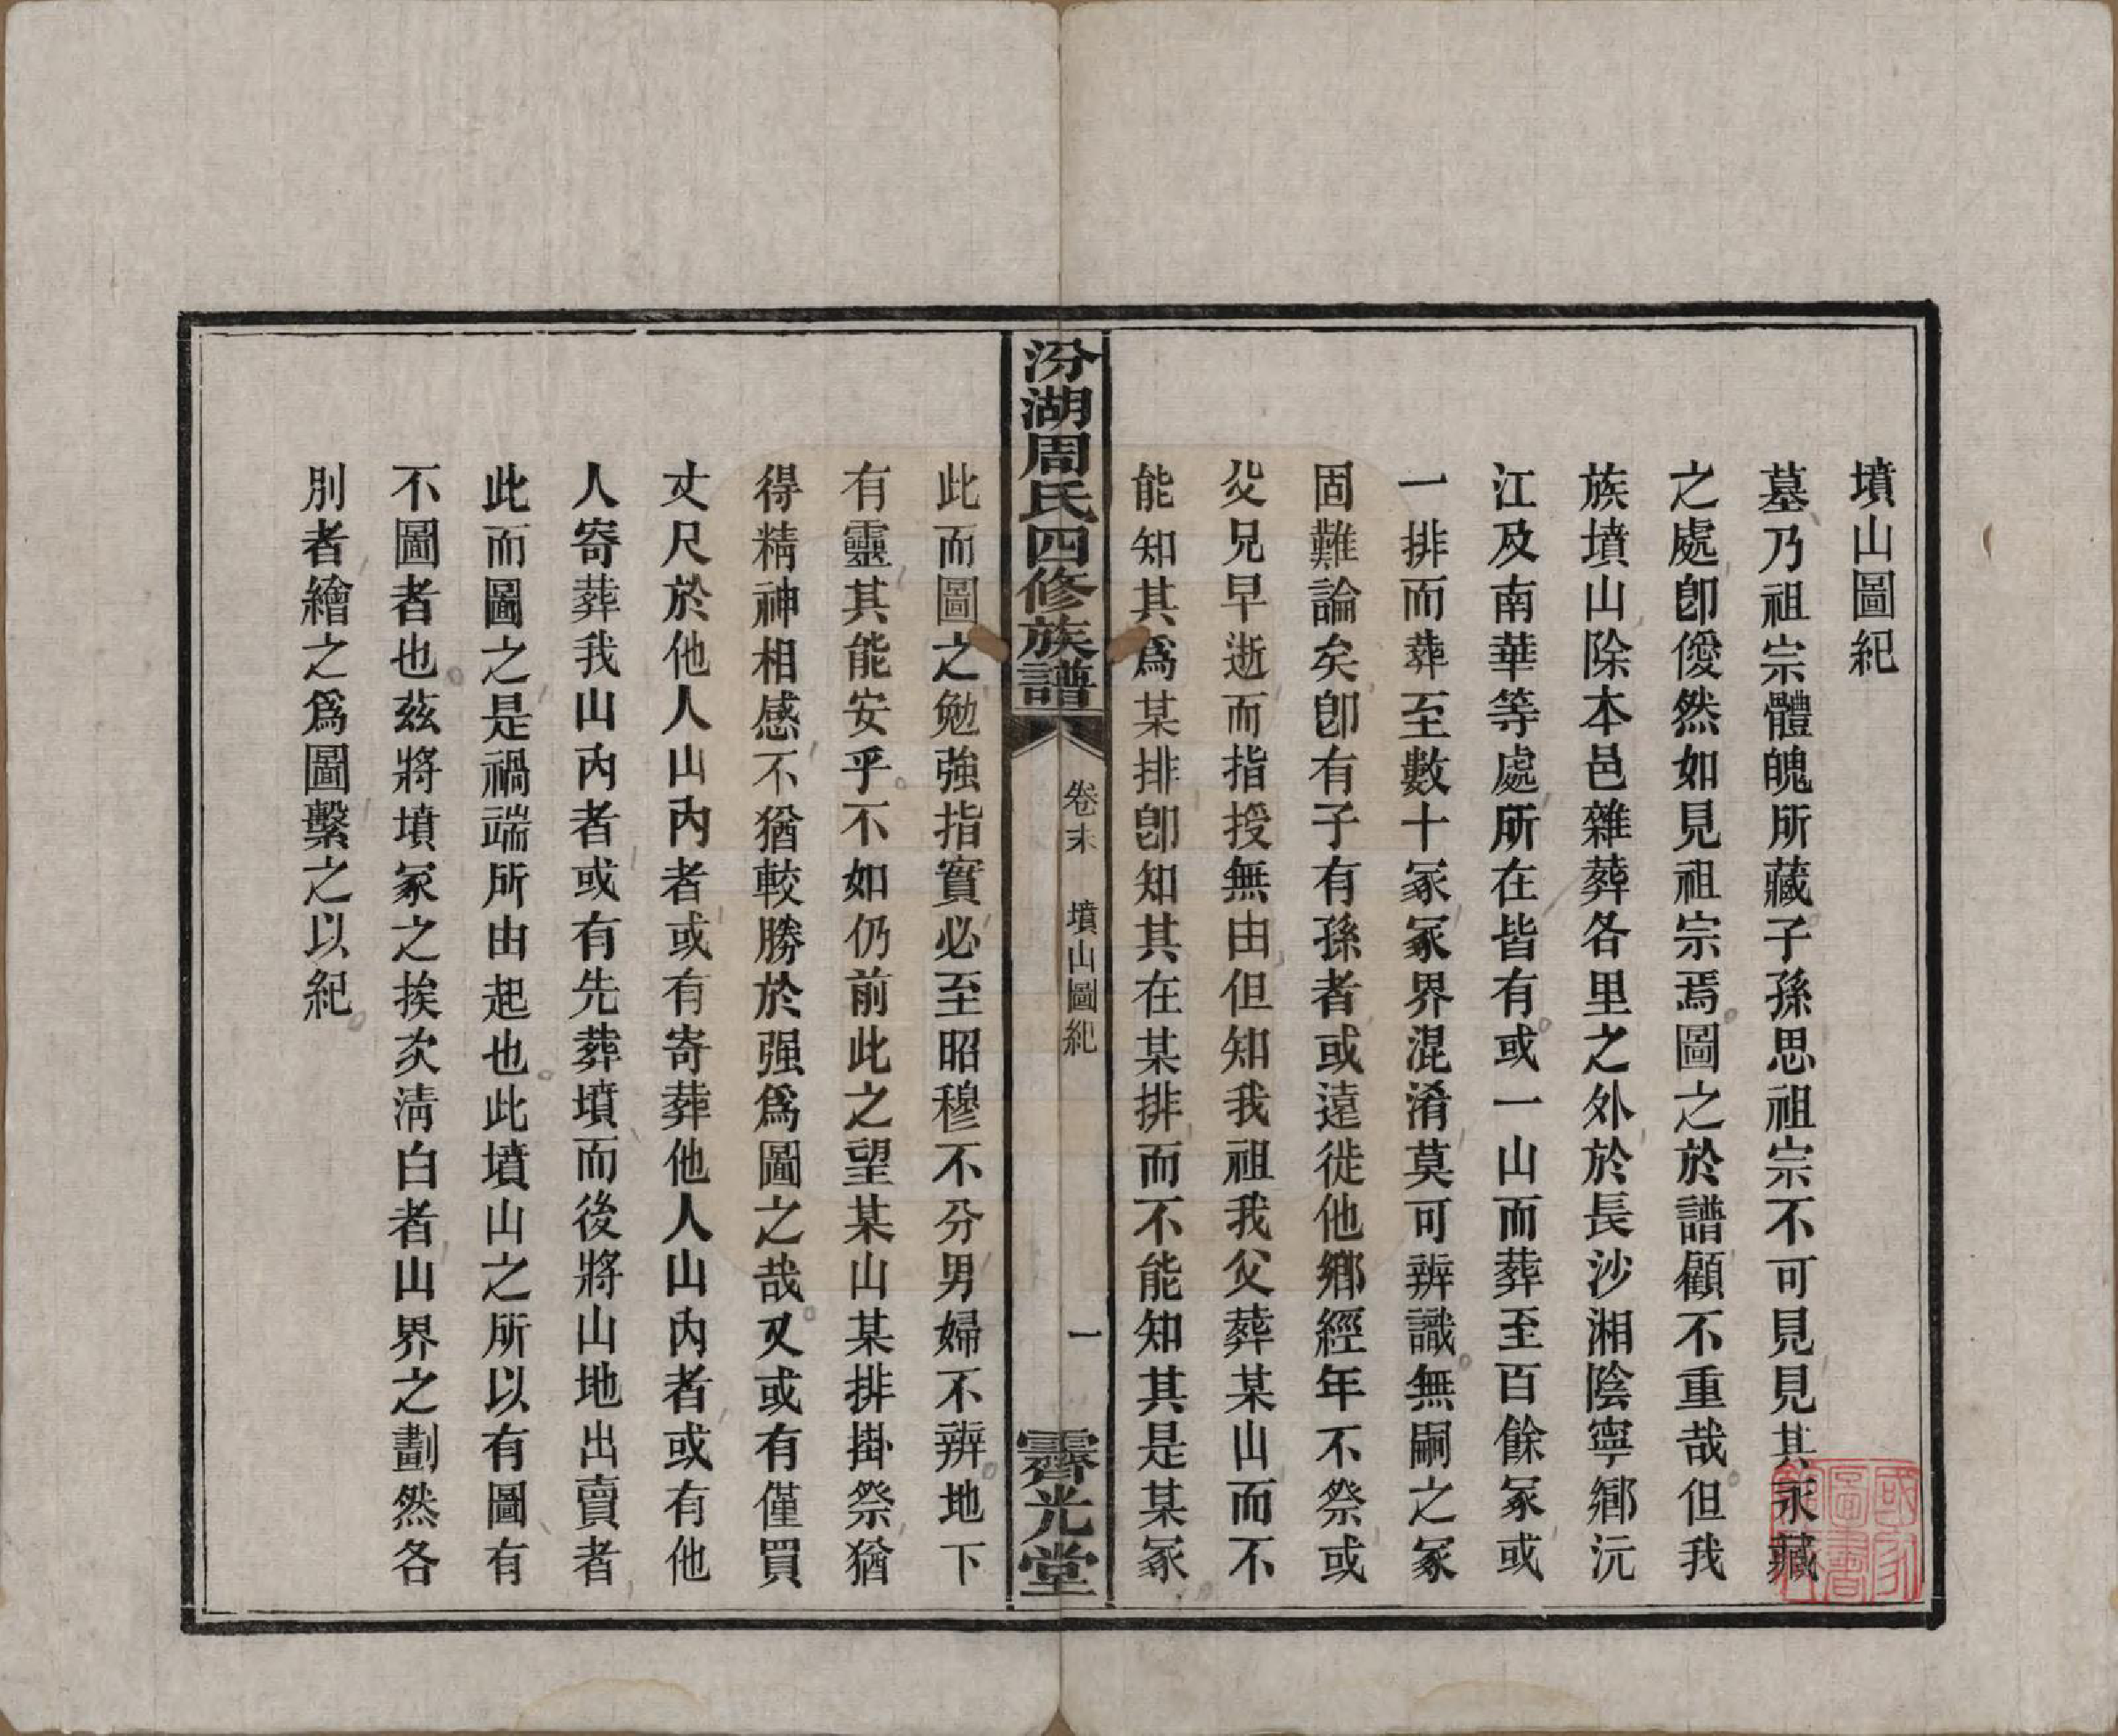 墳山圖紀
墓乃祖宗體魄所藏子孫思祖宗不可見見其永藏
之處卽僾然如見祖宗焉圖之於譜顧不重哉但我
族墳山除本邑雜葬各里之外於長沙湘陰寧鄉沅
江及南華等處所在皆有或一山而葬至百餘冢或
一排而葬至數十冢冢界混淆莫可辨識無嗣之冢
固難論矣卽有子有孫者或遠徙他鄉經年不祭或
父兄早逝而指授無由但知我祖我父葬某山而不
能知其爲某排卽知其在某排而不能知其是某冢
汾湖周氏四修族譜
卷末
墳山圖紀
一
霽光堂
此而圖之勉強指實必至昭穆不分男婦不辨地下
有靈其能安乎不如仍前此之望某山某排掛祭猶
得精神相感不猶較勝於强爲圖之哉又或有僅買
丈尺於他人山內者或有寄葬他人山內者或有他
人寄葬我山內者或有先葬墳而後將山地出賣者
此而圖之是禍端所由起也此墳山之所以有圖有
不圖者也茲將墳冢之挨次淸白者山界之劃然各
別者繪之爲圖繫之以紀
國家圖書館藏